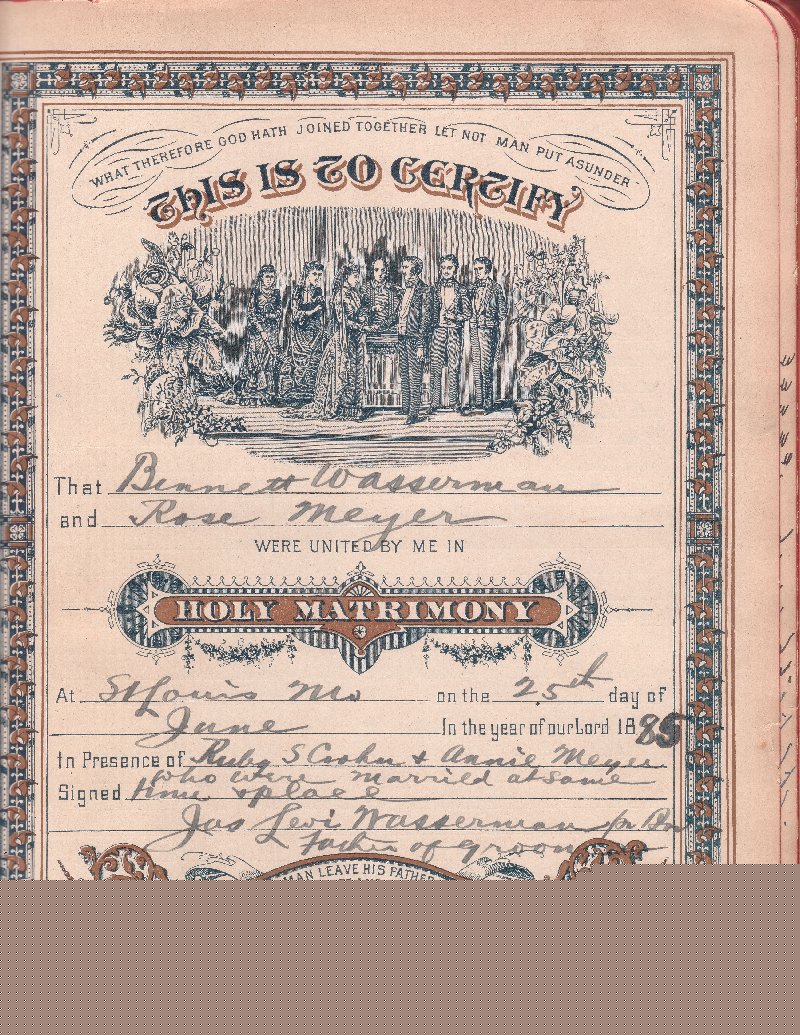 WHAT THEREFORE GOD HATH JOINED TOGETHER LET NOT MAN PUT ASUNDER
THIS IS TO CERTIFY
That Bennett Wasserman
and Rose Meyer
WERE UNITED BY ME IN
HOLY MATRIMONY
At St Louis Mo on the 25th day of
June In the year of our Lord 1885
In Presence of Ruby S Crohn & Annie Meyer
who were married at same
Signed time & place
Jos Levi Wasserman
Father of groom
MAN LEAVE HIS FATHER